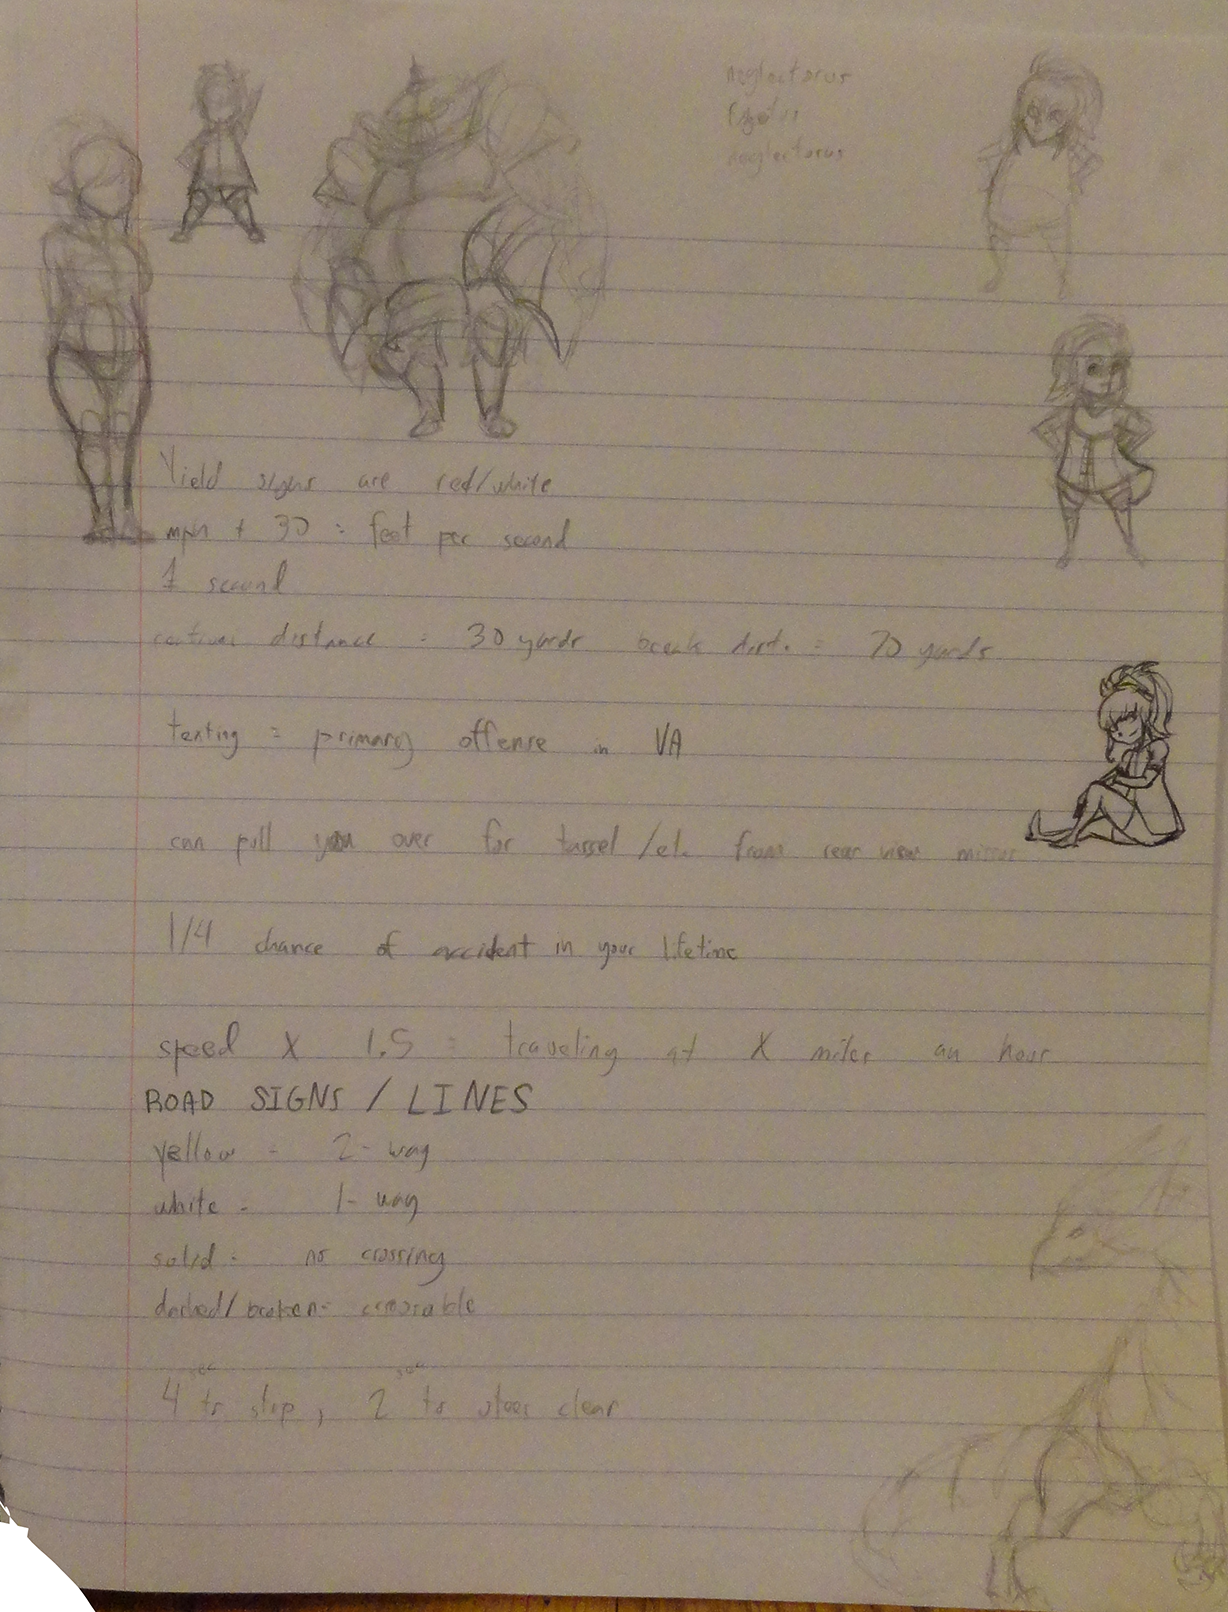 neglectorus
neglectorus
Yield signs are red/white
mph + 30 = feet per second
1 second
distance = 30 yards break dist. = 70 yards
texting = primary offense in VA
can pull you over for tassel /etc from rear view mirror
1/4 chance of accident in your lifetime
speed X 1.5 = traveling at X miles an hour
ROAD SIGNS / LINES
yellow - 2-way
white - 1-way
solid - no crossing
dashed/broken - crossable
4 sec to stop, 2 sec to steer clear